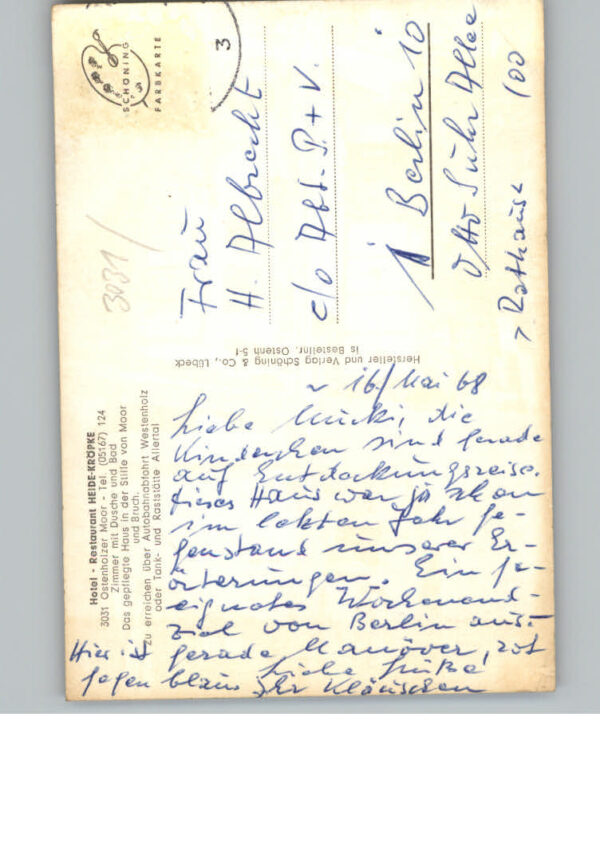 SCHÖNING
FARBKARTE
3
3031/
Frau
H. Albrecht
c/o Abt. P. + V.
1 Berlin 10
Otto Suhr Allee
100
> Rathaus <
Hersteller und Verlag Schöning & Co., Lübeck
is Bestellnr. Ostenh 5-1
Hotel - Restaurant HEIDE-KRÖPKE
3031 Ostenholzer Moor - Tel. (05167) 124
Zimmer mit Dusche und Bad
Das gepflegte Haus in der Stille von Moor
und Bruch.
Zu erreichen über Autobahnabfahrt Westenholz
oder Tank- und Raststätte Allertal
16/Mai 68
Liebe Mucki, die
Kinderchen sind gerade
auf Entdeckungsreise.
Dieses Haus war ja schon
im letzten Jahr Ge-
genstand unserer Er-
örterungen. Ein ge-
eignetes Wochenend-
ziel von Berlin aus.
Hier ist gerade Manöver, rot
gegen blau
Liebe Grüße
Ihr Kläuschen